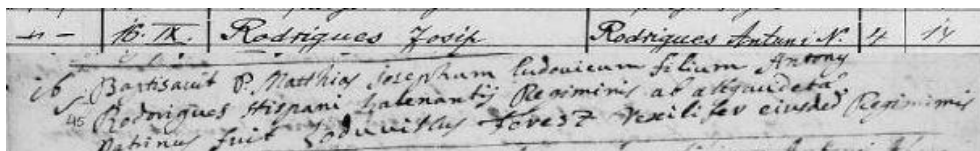 -"- 16. IX. Rodrigues Josip Rodrigues Antuni N. 4 14
16 Baptisavit P. Matthias Josephum Ludovicum filium Antony
S 45 Rodorigues Hispani Regiminis ab
Patrinus fuit Loduvikus Torest Vexilifer eiusdē Regiminis